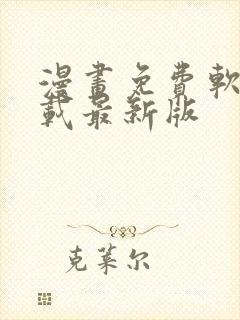 漫畫免費軟
載最新版
克萊尔